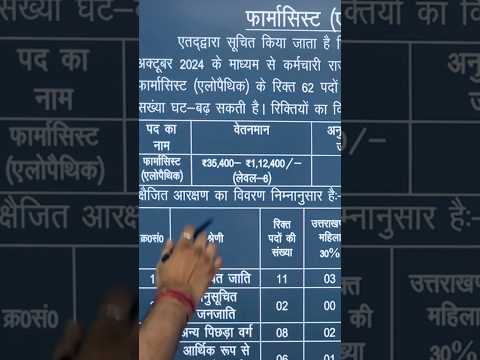 फार्मासिस्ट (ए
एतद्द्वारा सूचित किया जाता है
अक्टूबर 2024 के माध्यम से कर्मचारी रा
फार्मासिस्ट (एलोपैथिक) के रिक्त 62 पदों
संख्या घट–बढ़ सकती है। रिक्तियों का वि
पद का नाम
वेतनमान
अनु
फार्मासिस्ट (एलोपैथिक)
₹35,400– ₹1,12,400/–
(लेवल–6)
क्षैजित आरक्षण का विवरण निम्नानुसार है:-
क्र0सं0
श्रेणी
रिक्त पदों की संख्या
उत्तराखण
महिला
30%
1
जाति
11
03
नुसूचित जनजाति
02
00
अन्य पिछड़ा वर्ग
08
02
आर्थिक रूप से
06
01
पद का
नाम
फार्मासिस्ट
(एलोपैथिक)
क्षैजित आर
क्र0सं0
अनु
/–
सार है:-
उत्तराखण
महिला
30%
03
00
02